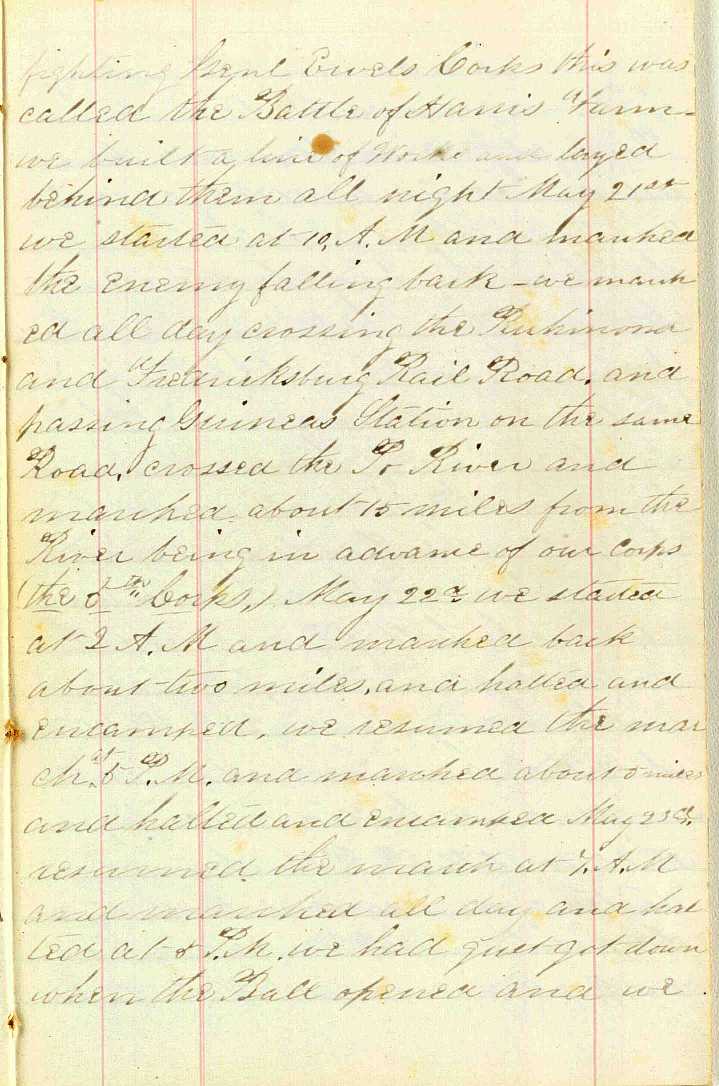 fighting Genl Ewels Corks this was
called the Battle of Harris Farm-
we built a line of Works and layed
behind them all night May 21st
we started at 10. A. M and marched
the enemy falling back - we march
ed all day crossing the Richmond
and Fredricksburg Rail Road. and
passing Guineas Station on the same
Road, crossed the Po River and
marched about 15 miles from the
River being in advance of our Corps
(the 5th Corks,) May 22d we started
at 2 A. M and marched back
about two miles, and halted and
encamped, we resumed the mar
ch. at 5 P. M. and marched about 5 miles
and halted and encamped May 23d.
resumed the march at 7. A. M
and marched all day and hal
ted at 5 P. M. we had just got down
when the Ball opened and we